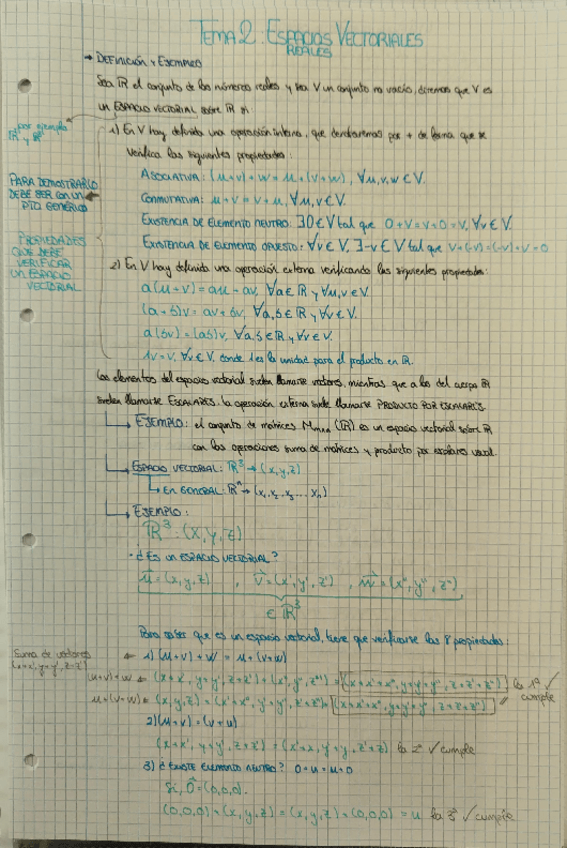 TEMA 2: ESPACIOS VECTORIALES
REALES
→ DEFINICIÓN Y EJEMPLO
Sea ℝ el conjunto de los números reales, y sea V un conjunto no vacío, diremos que V es
un ESPACIO VECTORIAL sobre ℝ si
por ejemplo
1) En V hay definida una operación interna, que denotaremos por + de forma que se
verifica las siguientes propiedades:
PARA DEMOSTRARLO
DEBE SER CON UN
PTO GENÉRICO
ASOCIATIVA: (u+v)+w = u+(v+w), ∀u,v,w ∈ V.
CONMUTATIVA: u+v = v+u, ∀u,v ∈ V.
EXISTENCIA DE ELEMENTO NEUTRO: ∃0 ∈ V tal que 0+v=v+0=v, ∀v ∈ V.
EXISTENCIA DE ELEMENTO OPUESTO: ∀v ∈ V, ∃-v ∈ V tal que v+(-v)=(-v)+v=0
PROPIEDADES
QUE DEBE
VERIFICAR
UN ESPACIO
VECTORIAL
2) En V hay definida una operación externa verificando las siguientes propiedades:
a(u+v)=au+av, ∀a ∈ ℝ y ∀u,v ∈ V.
(a+b)v = av+bv, ∀a,b ∈ ℝ y ∀v ∈ V.
a(bv)=(ab)v, ∀a,b ∈ ℝ y ∀v ∈ V.
1v=v, ∀v ∈ V, donde 1 es la unidad para el producto en ℝ.
Los elementos del espacio vectorial suelen llamarse vectores, mientras que a los del cuerpo ℝ
suelen llamarse ESCALARES. la operación externa suele llamarse PRODUCTO POR ESCALARES.
→ EJEMPLO: el conjunto de matrices Mmxn (ℝ) es un espacio vectorial sobre ℝ
con las operaciones suma de matrices y producto por escalares usual.
→ ESPACIO VECTORIAL: ℝ³ → (x,y,z)
→ EN GENERAL: ℝⁿ → (x₁, x₂, x₃ ... xₙ)
→ EJEMPLO:
ℝ³: (x,y,z)
· ¿ES UN ESPACIO VECTORIAL?
u⃗ = (x,y,z) , v⃗ = (x',y',z') , w⃗ = (x'',y'',z'')
∈ ℝ³
Para saber que es un espacio vectorial, tiene que verificarse las 8 propiedades:
Suma de vectores
(x+x', y+y', z+z')
← 1) (u+v)+w = u+(v+w)
(u+v)+w = (x+x', y+y', z+z')+(x'',y'',z'') = (x+x'+x'', y+y'+y'', z+z'+z'') la 1ª ✓ cumple
u+(v+w) = (x,y,z)+(x'+x'', y'+y'', z'+z'') = (x+x'+x'', y+y'+y'', z+z'+z'')
2) (u+v) = (v+u)
(x+x', y+y', z+z') = (x'+x, y'+y, z'+z) la 2ª ✓ cumple
3) ¿EXISTE ELEMENTO NEUTRO? 0+u = u+0
Si, 0⃗=(0,0,0).
(0,0,0)+(x,y,z) = (x,y,z)+(0,0,0) = u la 3ª ✓ cumple